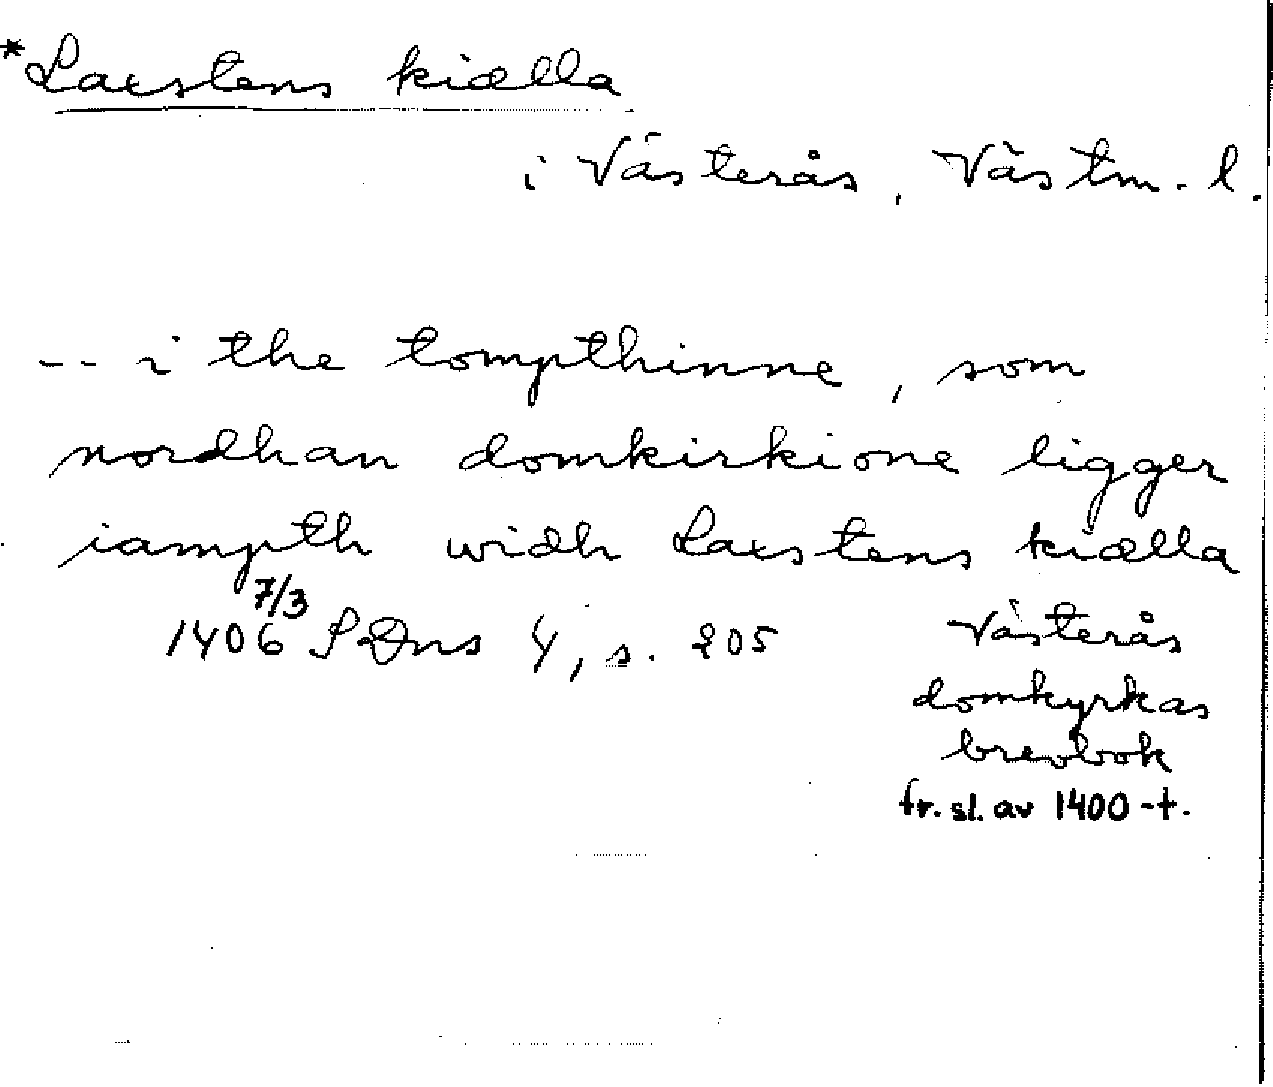 *Laxstens kiælla
i Västerås, Västm. l.
-- i the tompthinne, som
nordhan domkirkione ligger
iampth widh Laxstens kiælla
7/3
1406 SDns 4, s. 205 Västerås
domkyrkas
brevbok
fr. sl. av 1400-t.